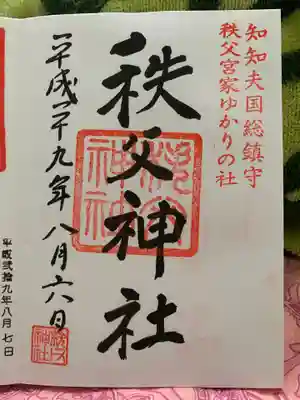 知知夫国総鎮守
秩父宮家ゆかりの社
秩父神社
平成二十九年八月六日
平成弐拾九年八月七日